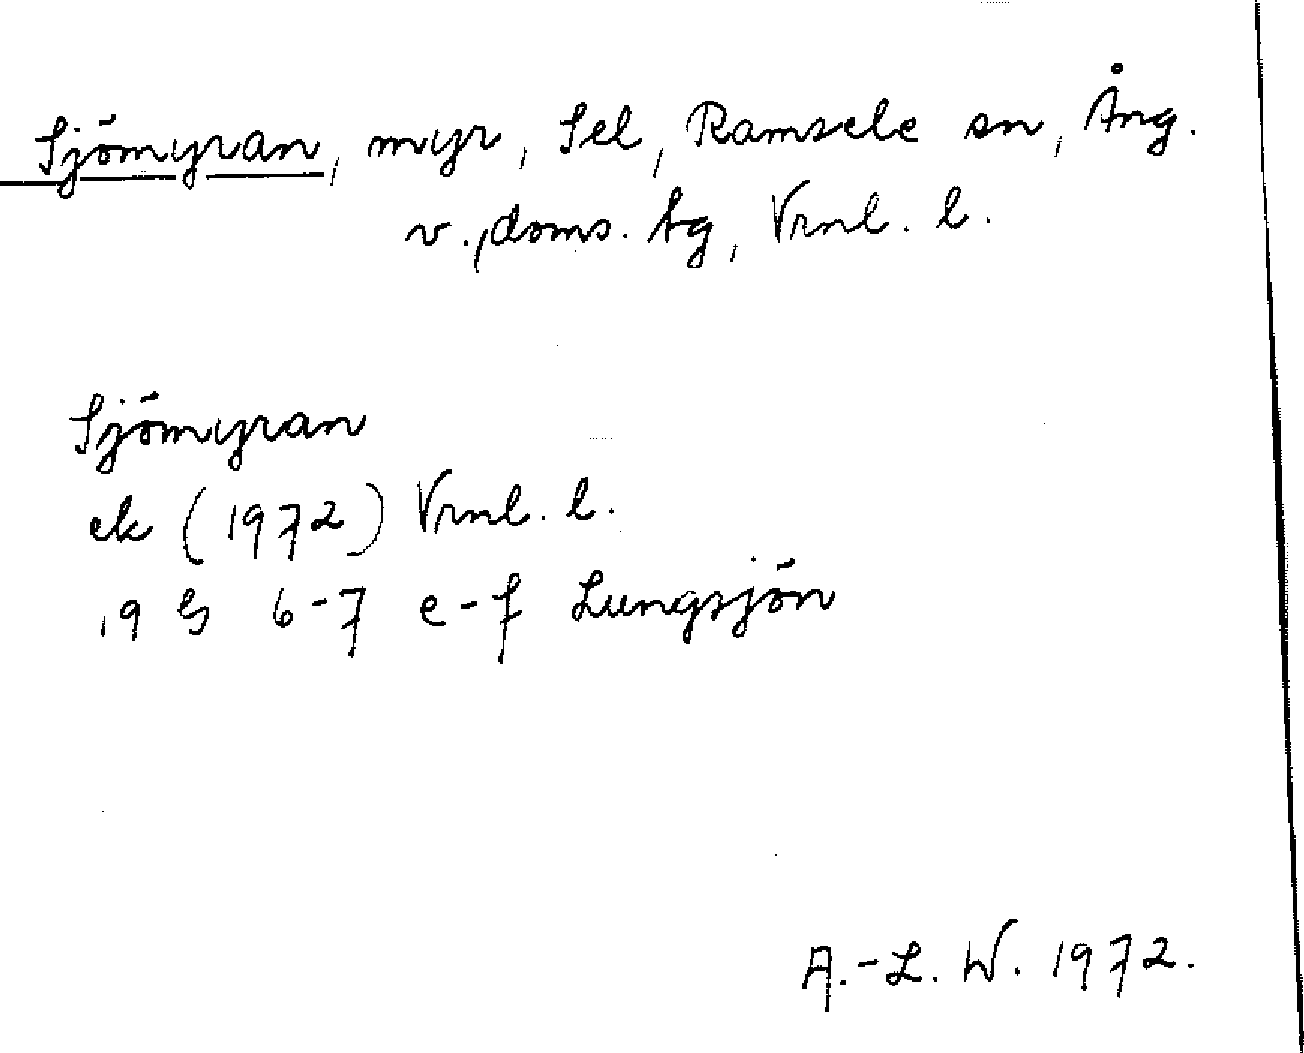 Sjömyran, myr, Sel, Ramsele sn, Ång.
v., doms. tg, Vrnl. l.
Sjömyran
ek (1972) Vrnl. l.
19 G 6-7 e-f Lungsjön
A.-L. W. 1972.